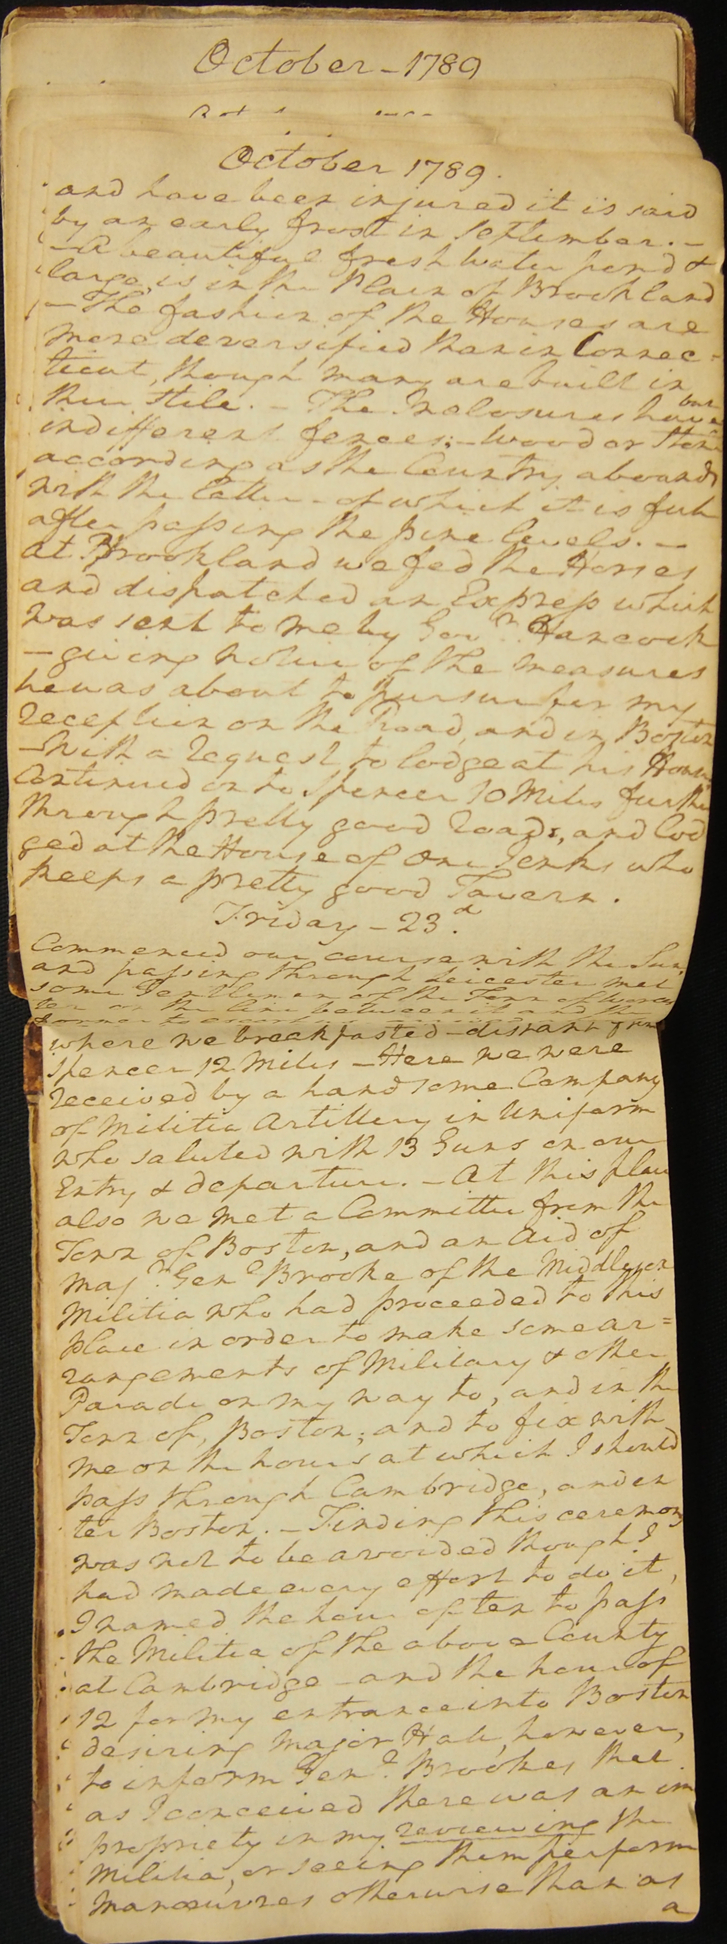 October - 1789
October 1789.
and have been injured it is said
by an early frost in September. -
- A beautiful fresh water pond &
large, is in the Plain of Brookland
- The fashion of the Houses are
more deversified than in Connec-
ticut, though many are built in
their stile. - The Inclosures have but
indifferent fences; - wood or Stone
according as the Country abounds
with the latter - of which it is full
after passing the pine levels. -
At Brookland we fed the Horses
and dispatched an Express which
was sent to me by Govr. Hancock
- giving notice of the measures
he was about to pursue for my
reception on the Road, and in Boston
- With a request to lodge at his House
Continued on to Spencer 10 Miles further
through pretty good roads, and lod
ged at the House of one Jenks who
keeps a pretty good Tavern.
Friday - 23d.
Commenced our course with the Sun,
and passing through Leicester met
some Gentlemen of the Town of Worces
ter on the line between it and the
where we breakfasted - distant from
Spencer 12 Miles - Here we were
received by a handsome Company
of Militia Artillery in Uniform
who saluted with 13 Guns on our
Entry & departure. - At this place
also we met a Committee from the
Town of Boston, and an Aid of
Majr. Genl Brooke of the Middlesex
Militia who had proceeded to this
place in order to make some ar=
rangements of Military & other
Parade on my way to, and in the
Town of, Boston; and to fix with
me on the hours at which I should
pass through Cambridge, and en
ter Boston. - Finding this ceremony
was not to be avoided though I
had made every effort to do it,
I named the hour of ten to pass
the Militia of the above County
at Cambridge - and the hour of
12 for my entrance into Boston
desiring Major Hale, however,
to inform Genl. Brookes that
as I conceived there was an im
propriety in my reviewing the
Militia, or seeing them perform
Manoeuvres otherwise than as
a